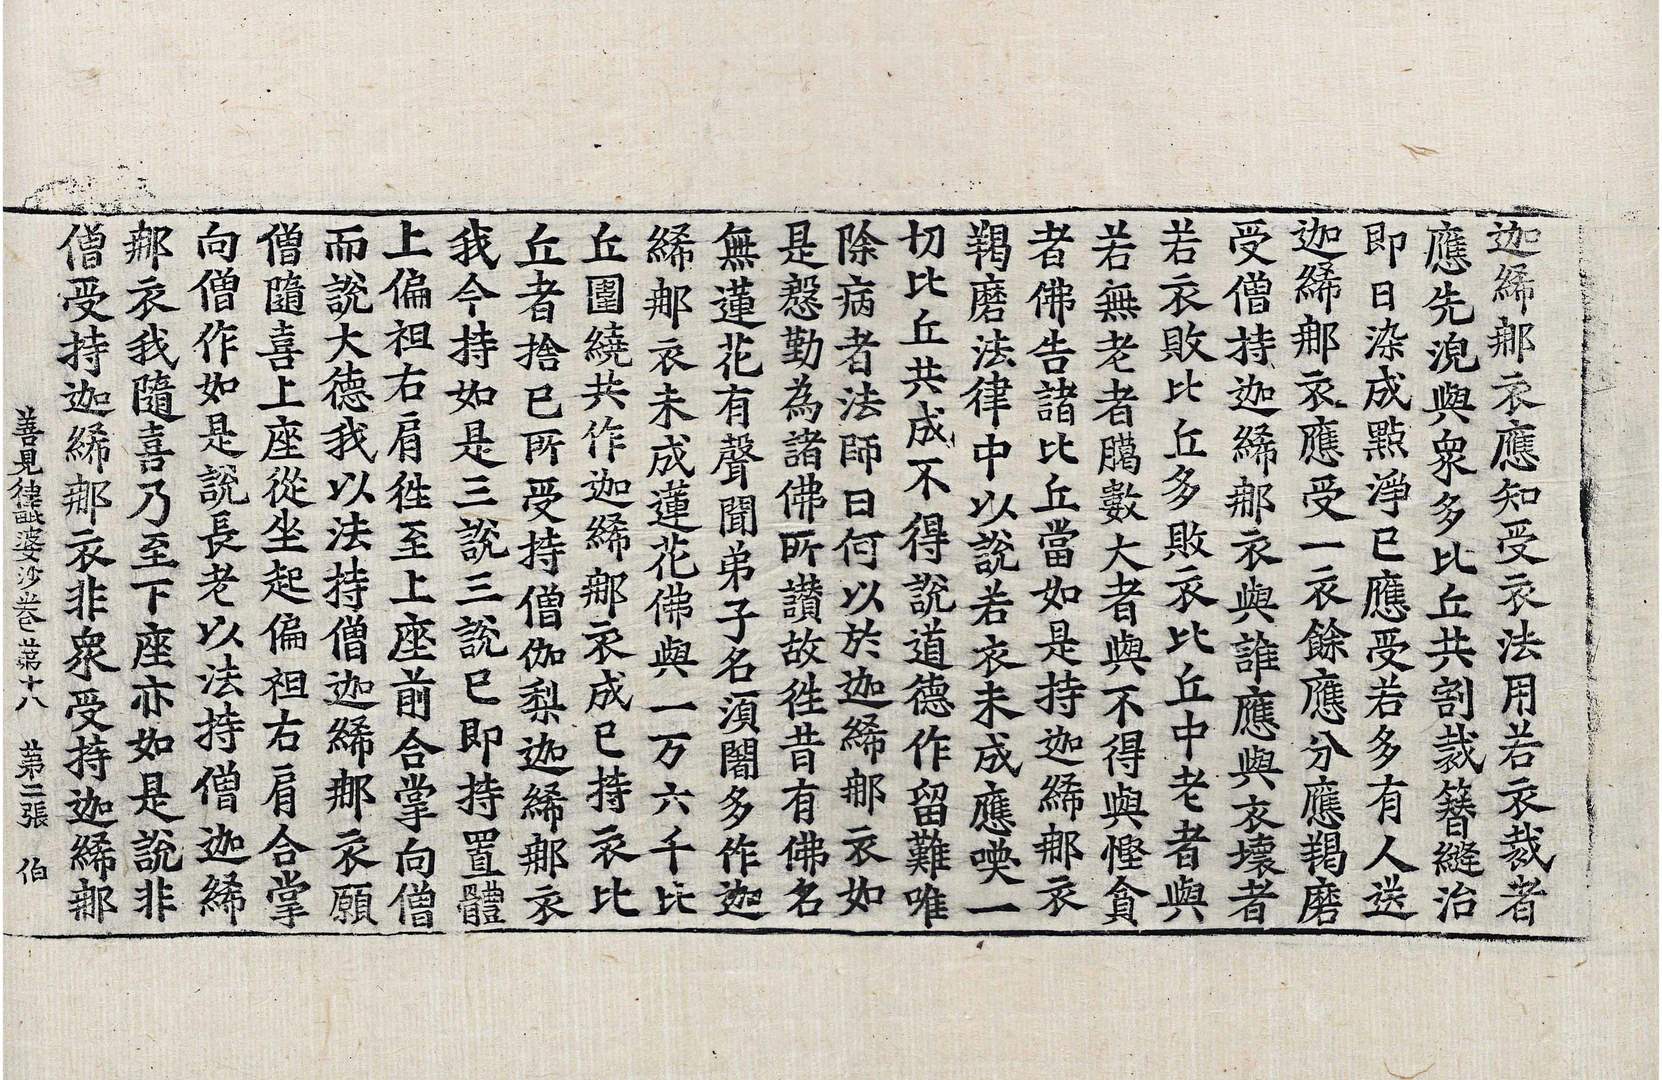 迦絺那衣應知受衣法用若衣裁者
應先浣與衆多比丘共割裁簪縫治
即日染成點淨已應受若多有人送
迦絺那衣應受一衣餘應分應羯磨
受僧持迦絺那衣與誰應與衣壞者
若衣敗比丘多敗衣比丘中老者與
若無老者臈數大者與不得與慳貪
者佛告諸比丘當如是持迦絺那衣
羯磨法律中以說若衣未成應喚一
切比丘共成不得說道德作留難唯
除病者法師曰何以於迦絺那衣如
是慇勤為諸佛所讃故徃昔有佛名
無蓮花有聲聞弟子名湏闍多作迦
絺那衣未成蓮花佛與一万六千比
丘圍繞共作迦絺那衣成已持衣比
丘者捨已所受持僧伽梨迦絺那衣
我今持如是三說三說已即持置體
上偏袒右肩徃至上座前合掌向僧
而說大德我以法持僧迦絺那衣願
僧隨喜上座從坐起偏袒右肩合掌
向僧作如是說長老以法持僧迦絺
那衣我隨喜乃至下座亦如是說非
僧受持迦絺那衣非衆受持迦絺那
善見律毗婆沙卷苐十八 苐二張 伯